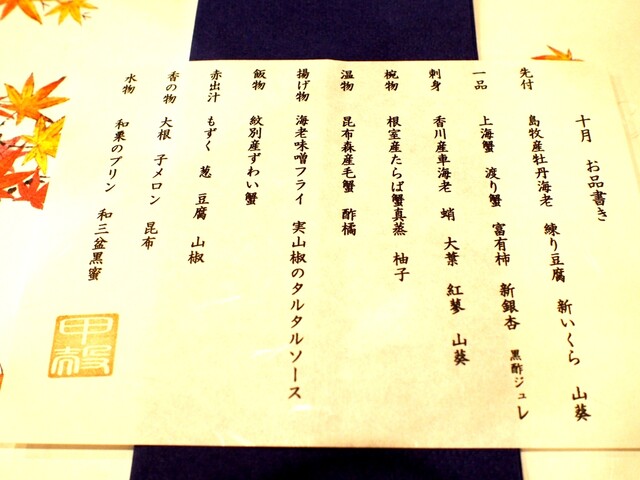 十月 お品書き
先付 島牧産牡丹海老 練り豆腐 新いくら 山葵
一品 上海蟹 渡り蟹 富有柿 新銀杏 黒酢ジュレ
刺身 香川産車海老 蛸 大葉 紅蓼 山葵
椀物 根室産たらば蟹真蒸 柚子
温物 昆布森産毛蟹 酢橘
揚げ物 海老味噌フライ 実山椒のタルタルソース
飯物 紋別産ずわい蟹
赤出汁 もずく 葱 豆腐 山椒
香の物 大根 子メロン 昆布
水物 和栗のプリン 和三盆黒蜜
甲殻